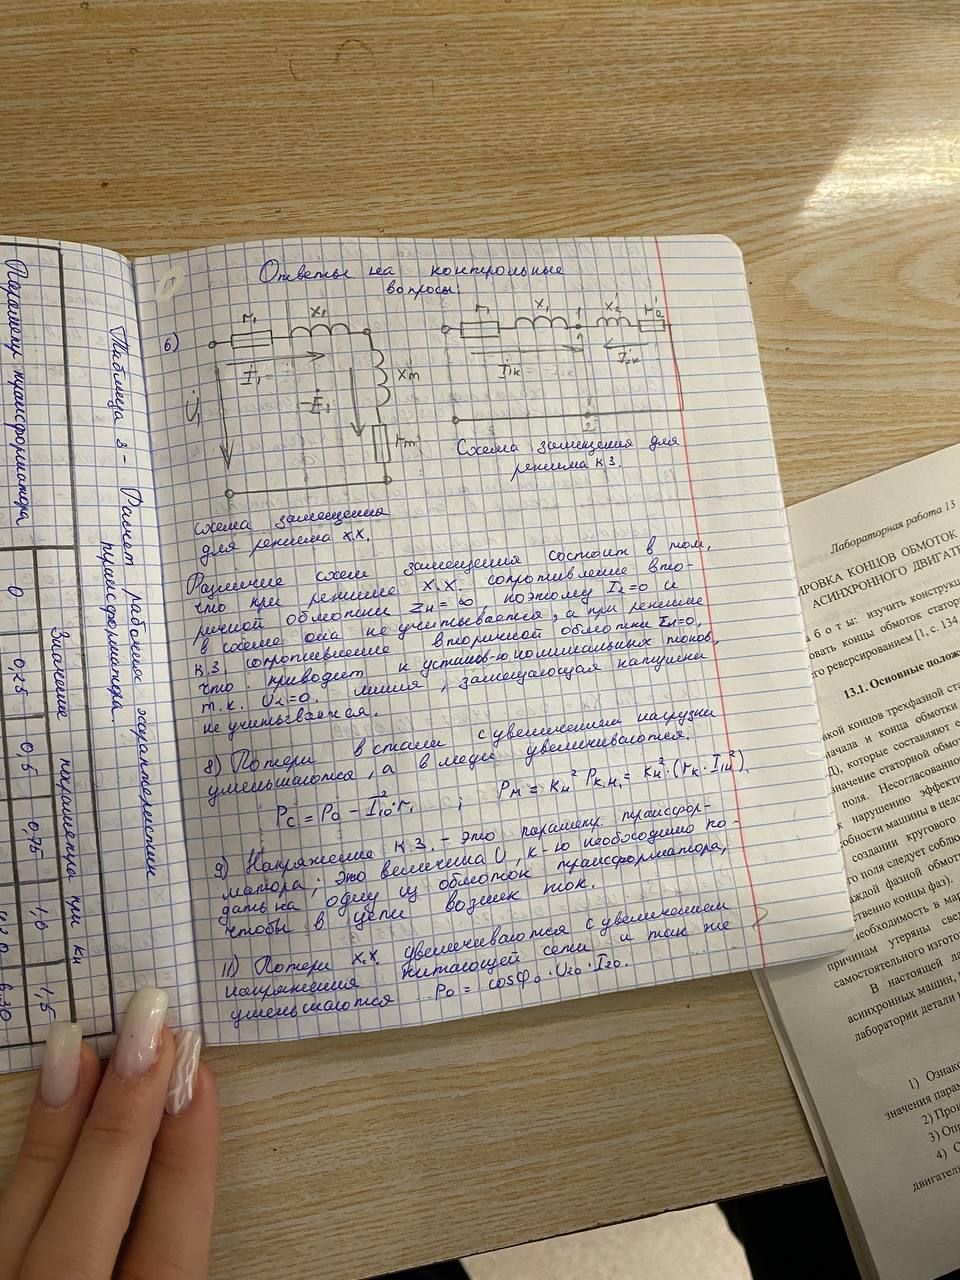 Ответы на контрольные
вопросы:
6)
r₁ x₁
İ₁
U̇₁
-Ė₁
xm
rm
r₁ x₁ 1 x₂' r₂'
İ₁к
İ₂к
2
Схема замещения для
режима к.з.
Схема замещения
для режима х.х.
Различие схем замещения состоит в том,
что при режиме х.х. сопротивление вто-
ричной обмотки zн = ∞ поэтому I₂=0 и
в схеме она не учитывается, а при режиме
к.з сопротивление вторичной обмотки Zн=0,
что приводит к установ-ю номинальных токов,
т.к. U₂=0. линия, замещающая катушки
не учитывается.
8) Потери в стали с увеличением нагрузки
уменьшаются, а в меди увеличиваются.
Pс = P₀ - I₁₀²·r₁ ; Pм = кн² Pк.н. = кн²·(rк·I₁н²).
9) Напряжение к.з. - это параметр трансфор-
матора; это величина U, к-ю необходимо по-
дать на одну из обмоток трансформатора,
чтобы в цепи возник ток.
11) Потери х.х. увеличиваются с увеличением
напряжения питающей сети и так же
уменьшаются P₀ = cosφ₀·U₂₀·I₂₀.
Таблица 8 - Расчет рабочих характеристик
трансформатора.
Параметр трансформатора
Значение параметра при кн
0 0,25 0,5 0,75 1,0 1,5
Лабораторная работа 13
РОВКА КОНЦОВ ОБМОТОК
АСИНХРОННОГО ДВИГАТЕ
аботы: изучить конструкц
овать концы обмоток статор
го реверсированием [1, с. 134
13.1. Основные полож
кой концов трехфазной ста
ачала и конца обмотки
Д), которые составляют е
значение статорной обмот
поля. Несогласованно
нарушению эффекти
обности машины в цело
создании кругового
го поля следует соблю
аждой фазной обмот
ственно концы фаз).
Необходимость в мар
причинам утеряны све
самостоятельного изгото
В настоящей ла
асинхронных машин,
лаборатории детали и
1) Ознако
значения парам
2) Про
3) Оп
4) С
двигателя